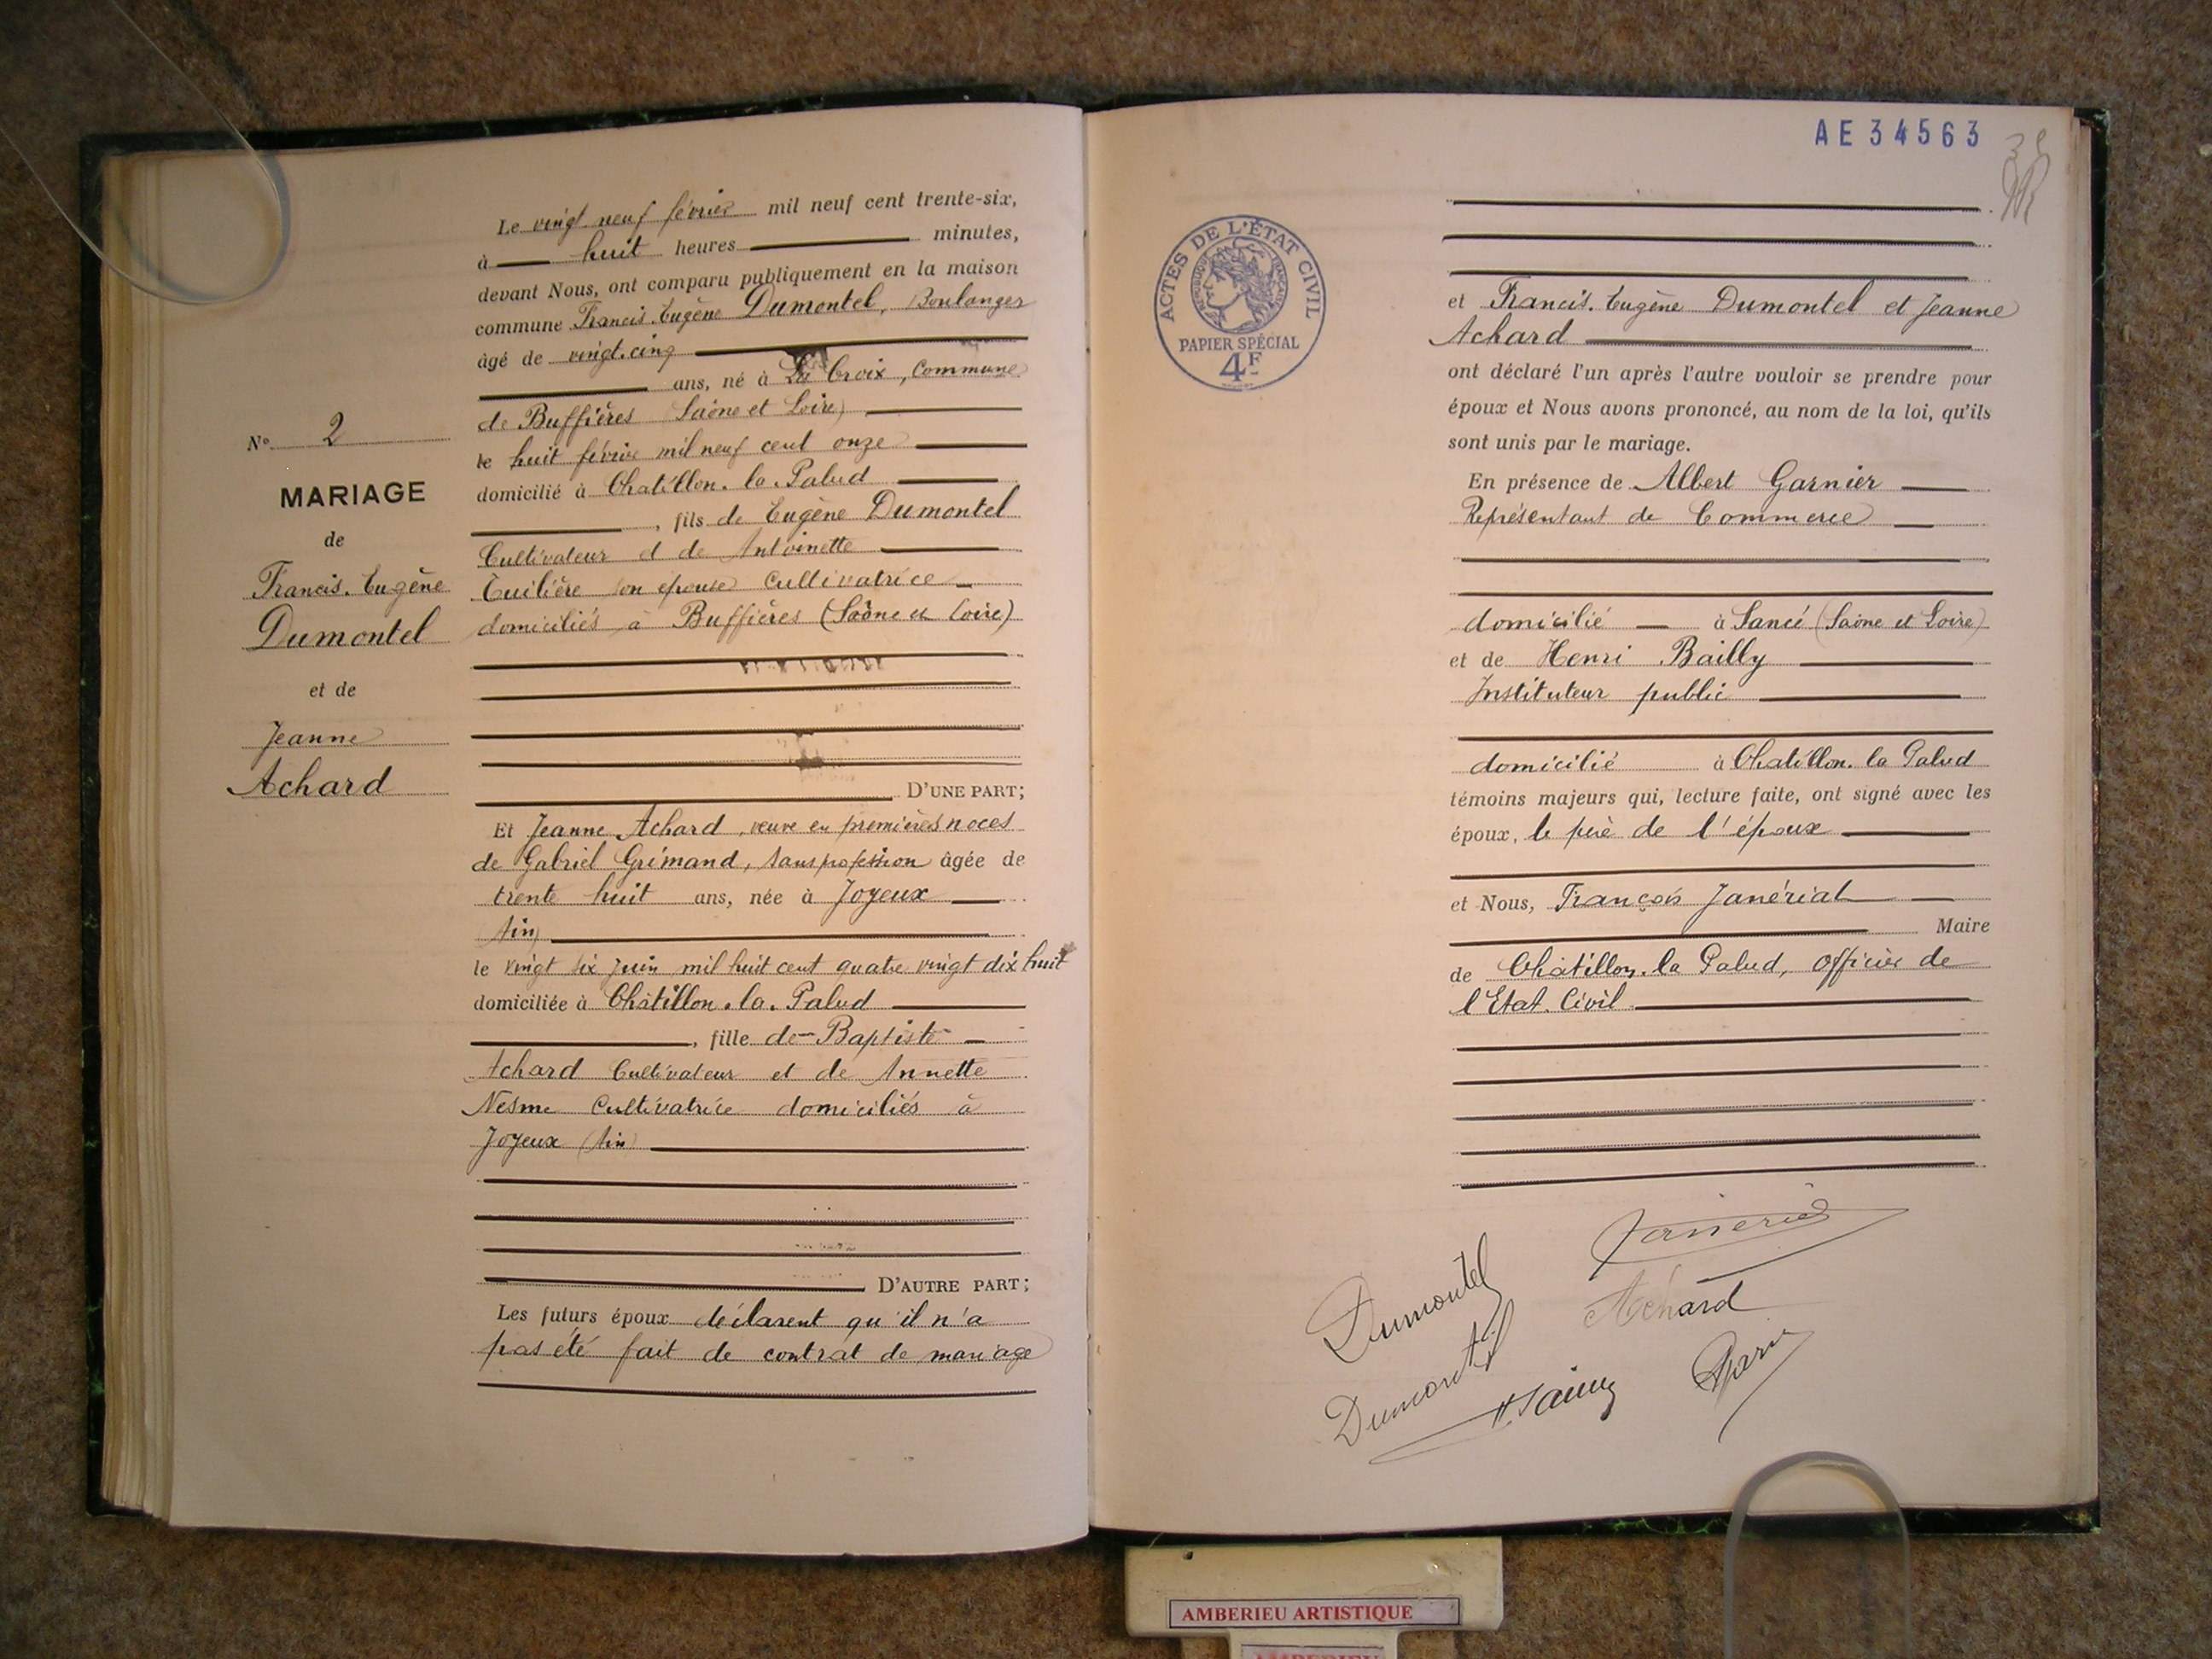 Le vingt neuf février mil neuf cent trente-six,
à huit heures minutes,
devant Nous, ont comparu publiquement en la maison
commune Francis. Eugène Dumontel, Boulanger
âgé de vingt.cinq
ans, né à La Croix, Commune
de Buffières Saône et Loire)
le huit février mil neuf cent onze
domicilié à Chatillon. la. Palud
, fils de Eugène Dumontel
Cultivateur et de Antoinette
Tuilière son epouse Cultivatrice
domiciliés à Buffières (Saône et Loire)
D'UNE PART;
N° 2
MARIAGE
de
Francis. Eugène
Dumontel
et de
Jeanne
Achard
Et Jeanne Achard, veuve en premières noces
de Gabriel Grimand, sans profession âgée de
trente huit ans, née à Joyeux
(Ain)
le vingt six juin mil huit cent quatre vingt dix huit
domiciliée à Châtillon. la. Palud
, fille de Baptiste
Achard Cultivateur et de Annette
Nesme Cultivatrice domiciliés à
Joyeux (Ain)
D'AUTRE PART;
Les futurs époux déclarent qu'il n'a
pas été fait de contrat de mariage
AE34563
ACTES DE L'ÉTAT CIVIL
REPUBLIQUE FRANÇAISE
PAPIER SPÉCIAL
4F
et Francis. Eugène Dumontel et Jeanne
Achard
ont déclaré l'un après l'autre vouloir se prendre pour
époux et Nous avons prononcé, au nom de la loi, qu'ils
sont unis par le mariage.
En présence de Albert Garnier
Représentant de Commerce
domicilié à Sancé (Saône et Loire)
et de Henri Bailly
Instituteur public
domicilié à Chatillon. la Palud
témoins majeurs qui, lecture faite, ont signé avec les
époux, le père de l'époux
et Nous, François Janériat
Maire
de Châtillon. la Palud, Officier de
l'Etat. Civil
Dumontel
Achard
Dumontel
AMBERIEU ARTISTIQUE
AMBERIEU